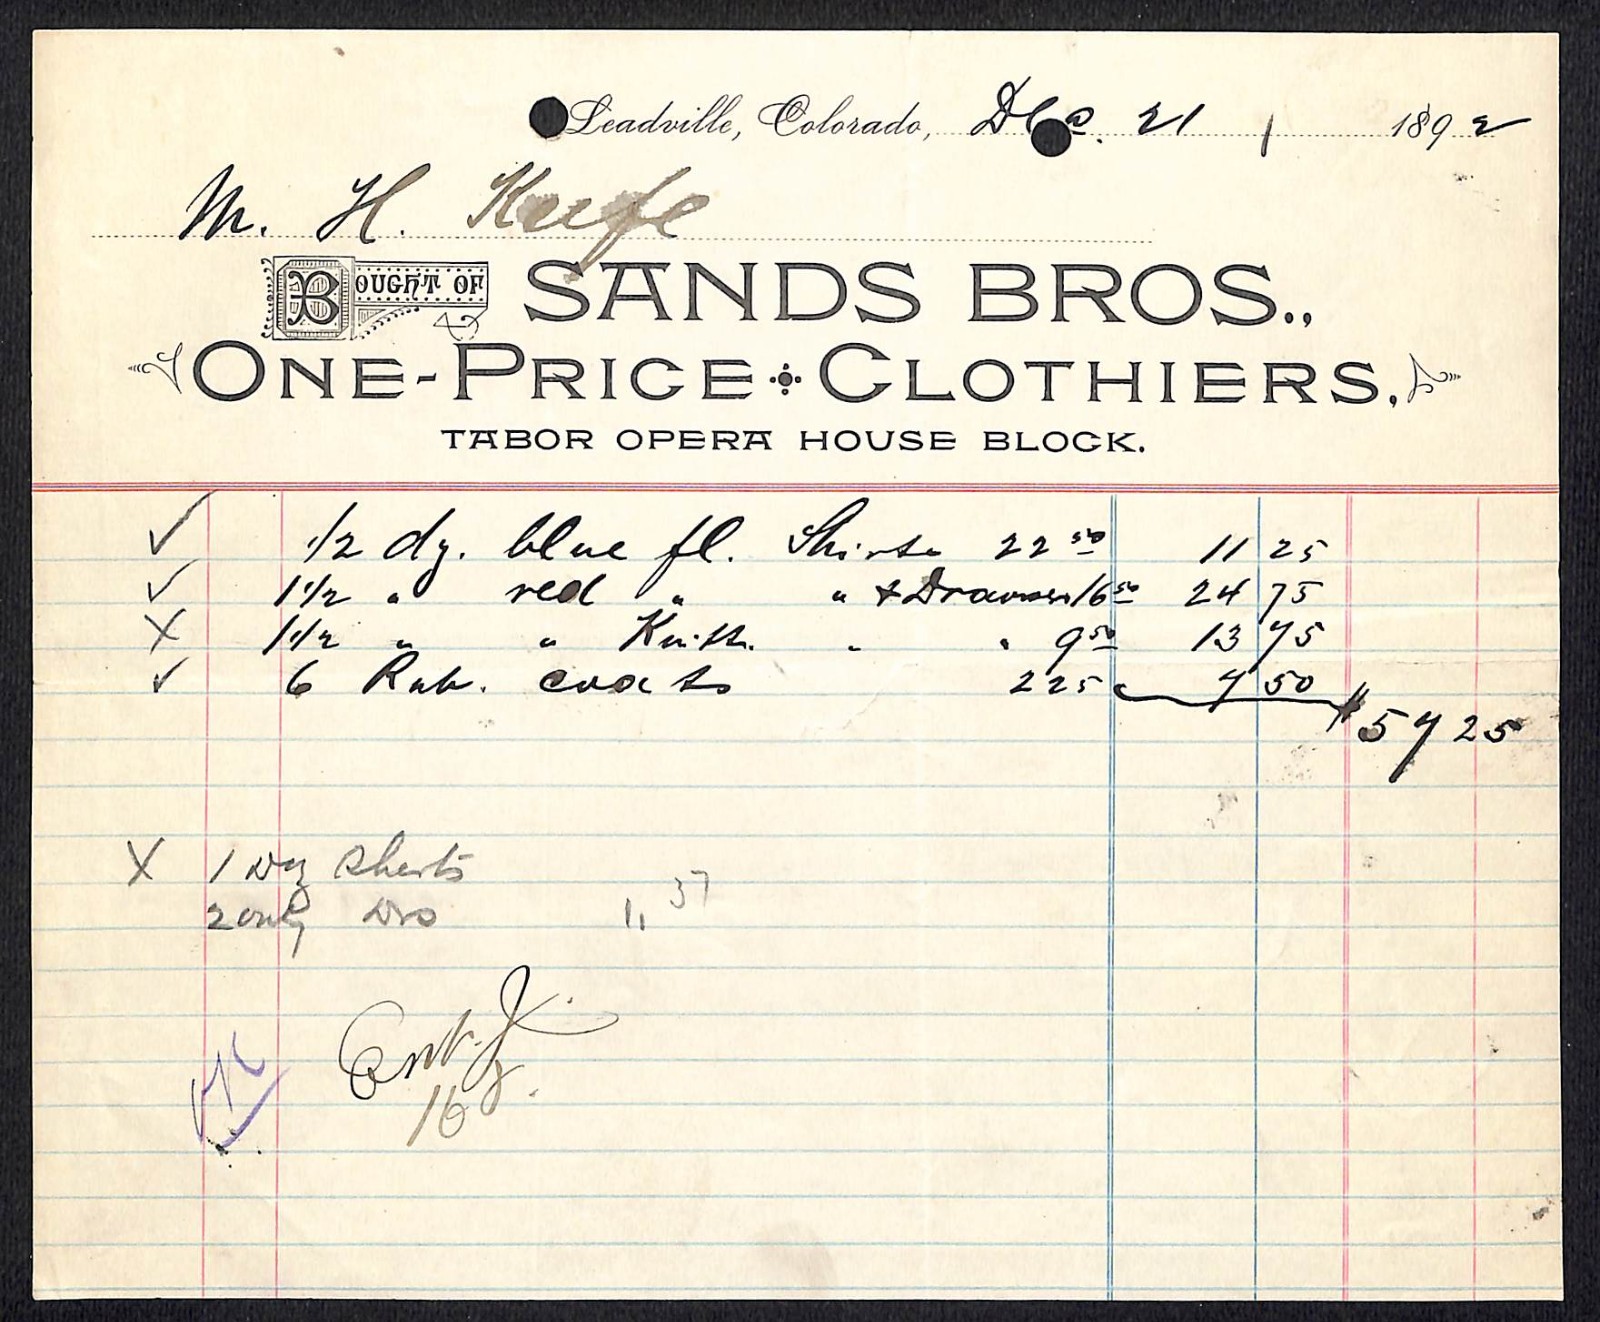 Leadville, Colorado, Dec. 21 1892
M. H. Keefe
BOUGHT OF SANDS BROS.,
ONE-PRICE CLOTHIERS,
TABOR OPERA HOUSE BLOCK.
1/2 dz. blue fl. Shirts 22 50 11 25
1 1/2 " red " " & Drawers 16 50 24 75
1 1/2 " " Knitt. " " 9 50 13 75
6 Rub. coats 2 25 7 50
$57 25
X 1 Doz Sherts
2 only Dro 11 37
OK
Ent. J.
16